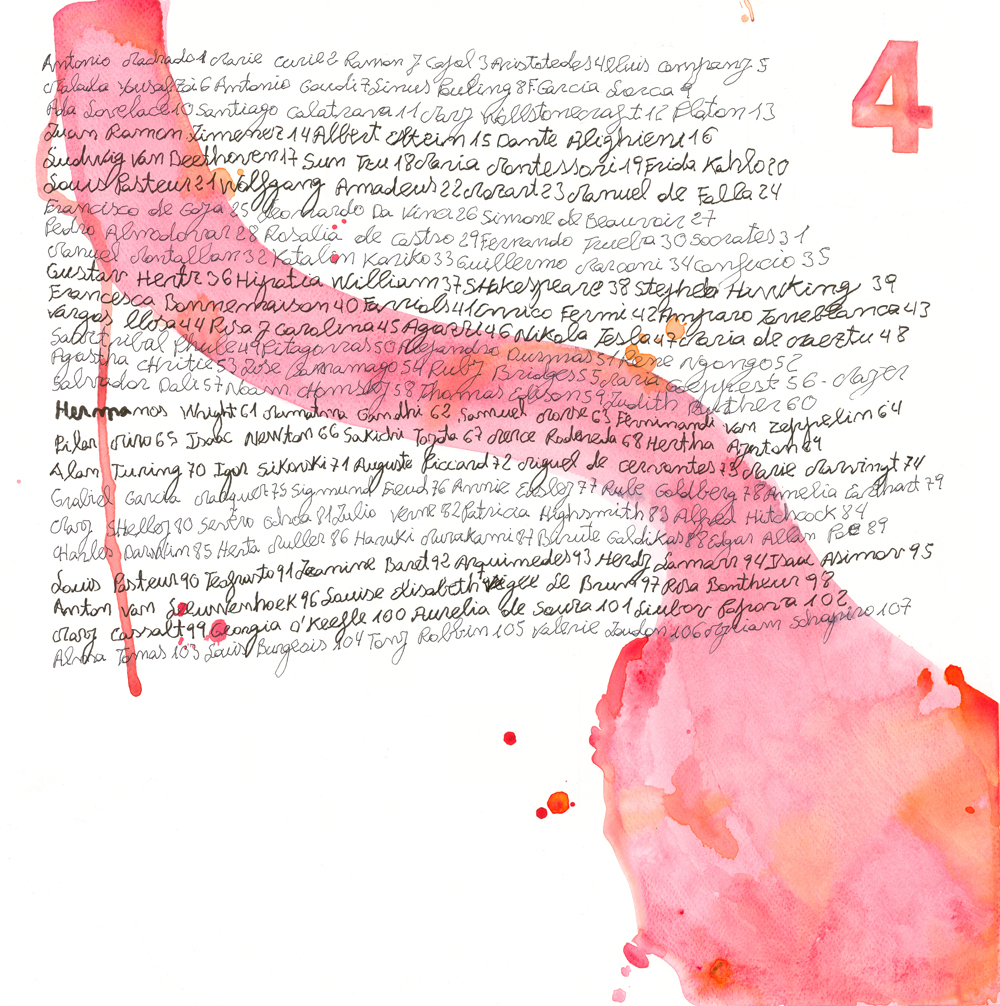 4
Antonio Machado 1 Marie Curie 2 Ramon y Cajal 3 Aristotedes 4 lluis companys 5
Malala Yousafzai 6 Antonio Gaudi 7 Linus Pauling 8 F Garcia Lorca 9
Ada Lovelace 10 Santiago Calatrava 11 Mary Wollstonecraft 12 Platon 13
Juan Ramon Jimenez 14 Albert Eltein 15 Dante Alighieri 16
Ludwig Van Beethoven 17 Sun Tzu 18 Maria Montessori 19 Frida Kahlo 20
Louis Pasteur 21 Wolfgang Amadeus 22 Mozart 23 Manuel de Falla 24
Francisco de Goya 25 Leonardo Da Vinci 26 Simone de Beauvoir 27
Pedro Almodovar 28 Rosalia de castro 29 Fernando Trueba 30 Socrates 31
Manuel Montallan 32 Katalin Kariko 33 Guillermo Marconi 34 confucio 35
Gustav Hertz 36 Hipatia William 37 SHakespeare 38 Stephen Hawking 39
Francesca Bonnemaison 40 Farriols 41 Enrico Fermi 42 Amparo Torreblanca 43
Vargas llosa 44 Rosa y Carolina 45 Agazzi 46 Nikola Tesla 47 Maria de Maeztu 48
Phule 49 Pitagorras 50 Alejandro Dumas 51 Rene Ngongo 52
Agastha CHritie 53 Jose Sarramago 54 Ruby Bridges 55 Maria 56 - Mayer
Salvador Dali 57 Noam Chomsky 58 Thomas Edison 59 Judith Buther 60
Hermmamos Wright 61 Mamatma Gandhi 62 Samuel Morse 63 Ferninandi von zeppelin 64
Pilar Miro 65 Isaac Newton 66 Sakichi Toyota 67 Merce Rodereda 68 Hertha Ayrton 69
Alan Turing 70 Igor Sikorski 71 Auguste Piccard 72 Miguel de cervantes 73 Marie Marvingt 74
Grabiel Garcia Marquez 75 Sigmund Feud 76 Annie Easley 77 Rube Goldberg 78 Amelia Earhart 79
Mary SHelley 80 Severo Ochoa 81 Julio Verne 82 Patricia Highsmith 83 Alfred Hitchcock 84
CHarles Darwin 85 Herta Muller 86 Haruki Murakami 87 Birute Galdikas 88 Edgar Allan Poe 89
Louis Pasteur 90 Teofrasto 91 Jeanine Baret 92 Arquimedes 93 Hedy Lamarr 94 Isaac Asimov 95
Anton van Leeuwenhoek 96 Louise Elisabeth Vigee Le Brun 97 Rosa Bontheur 98
Mary Cassalt 99 Georgia O'Keefle 100 Aurelia de Souza 101 Liubov Popova 102
Alma Tomas 103 Louis Burgeois 104 Tony Robbin 105 Valerie 106 Myriam Schapiro 107